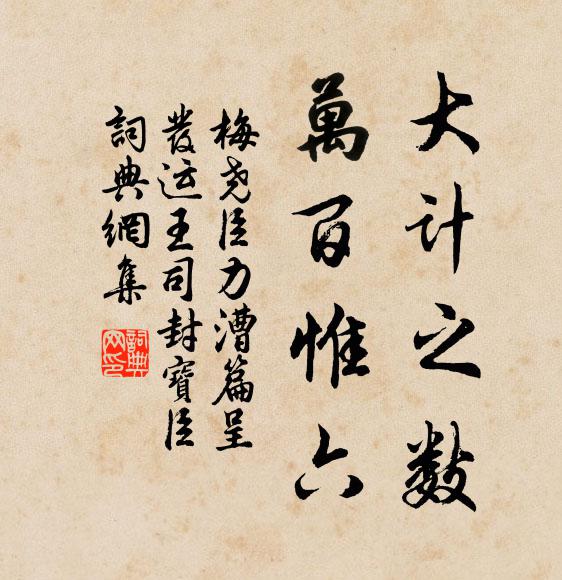 大计之数
萬百惟六
梅尭臣力漕篇呈
發运王司封寶臣
詞典網集
詞典網印